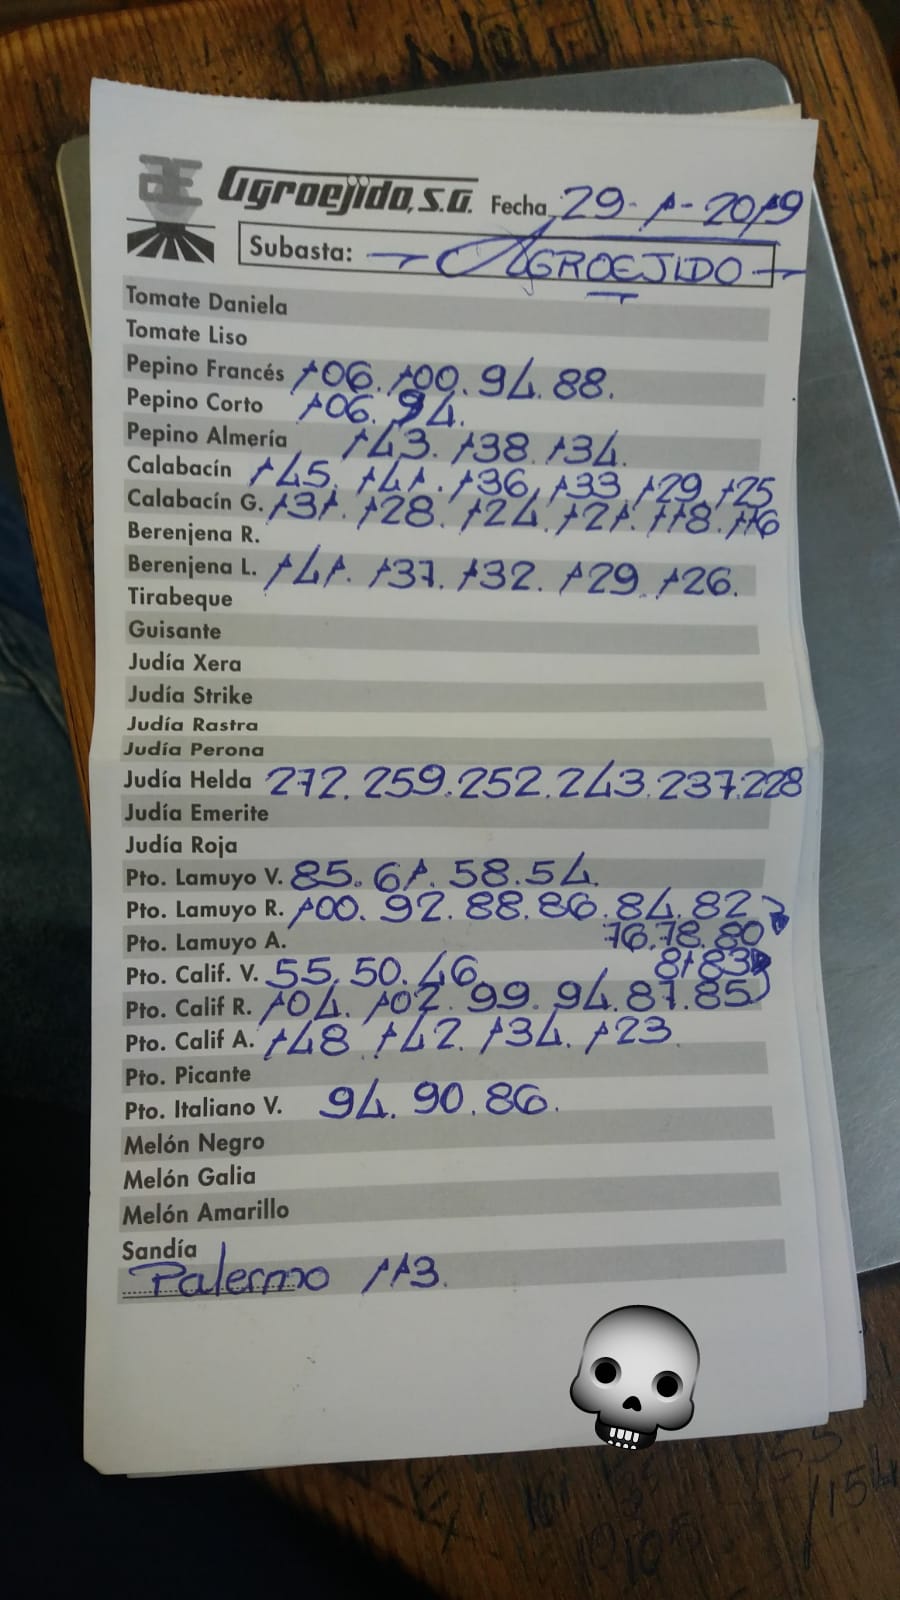 Agroejido, S.A. Fecha 29-1-2019
Subasta: AGROEJIDO
Tomate Daniela
Tomate Liso
Pepino Francés 106. 100. 94. 88.
Pepino Corto 106. 94.
Pepino Almería 143. 138. 134.
Calabacín 145. 141. 136. 133. 129. 125
Calabacín G. 131. 128. 124. 121. 118. 116
Berenjena R.
Berenjena L. 141. 137. 132. 129. 126.
Tirabeque
Guisante
Judía Xera
Judía Strike
Judía Rastra
Judía Perona
Judía Helda 272. 259. 252. 243. 237. 228
Judía Emerite
Judía Roja
Pto. Lamuyo V. 85. 61. 58. 54.
Pto. Lamuyo R. 100. 92. 88. 86. 84. 82
76. 78. 80
Pto. Lamuyo A.
81 83
Pto. Calif. V. 55. 50. 46
Pto. Calif R. 104. 102. 99. 94. 87. 85
Pto. Calif A. 148. 142. 134. 123
Pto. Picante
Pto. Italiano V. 94. 90. 86.
Melón Negro
Melón Galia
Melón Amarillo
Sandía
Palermo 113.